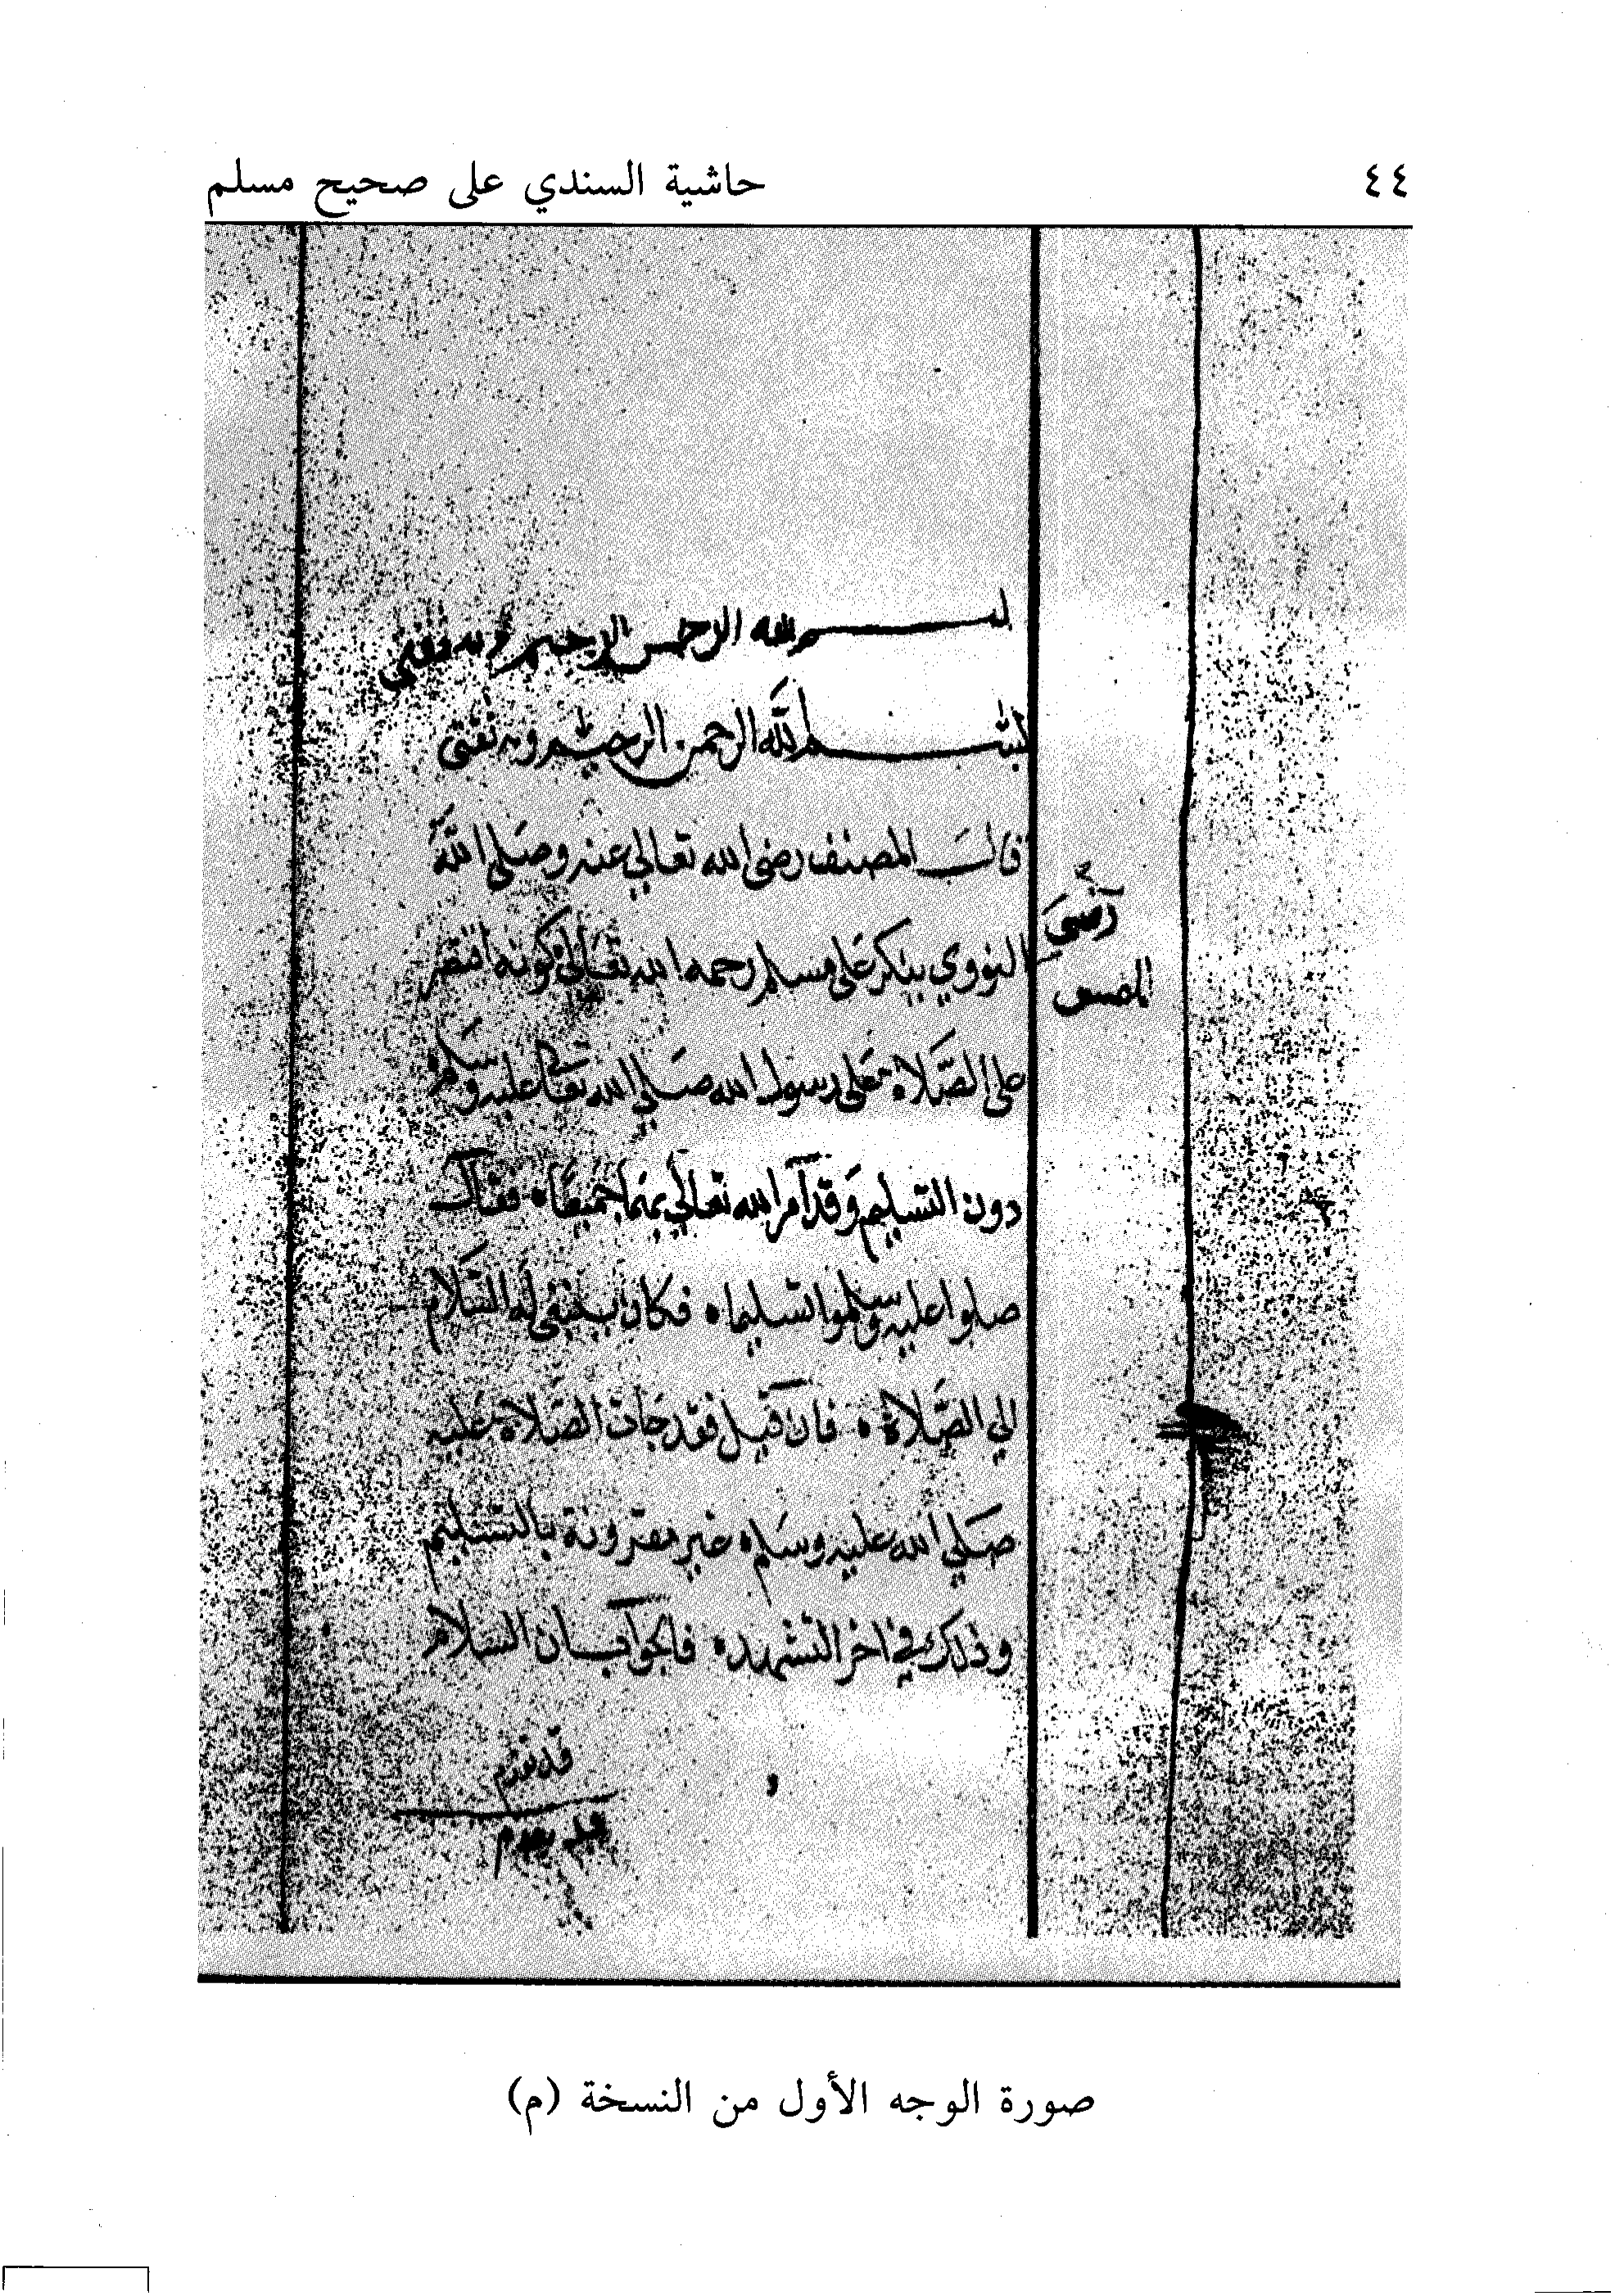 ٤٤
حاشية السندي على صحيح مسلم
بسم الله الرحمن الرحيم وبه ثقتي
بسم الله الرحمن الرحيم وبه ثقتي
قال المصنف رضى الله تعالي عنه وصلى الله
النووي ينكر على مسلم رحمه الله تعالى كونه اقتصر
على الصلاة على رسول الله صلي الله تعالى عليه وسلم
دون التسليم وقد آمر الله تعالي بهما جميعا ه فقال
صلوا عليه وسلموا تسليما ه فكان ينبغي له السلام
الي الصلاة ه فان قيل فقد جات الصلاة عليه
صلي الله عليه وسلم ه غير مقرونة بالتسليم
وذلك في اخر التشهد ه فالجواب ان السلام
قد تقدم
قد تقدم
صورة الوجه الأول من النسخة (م)